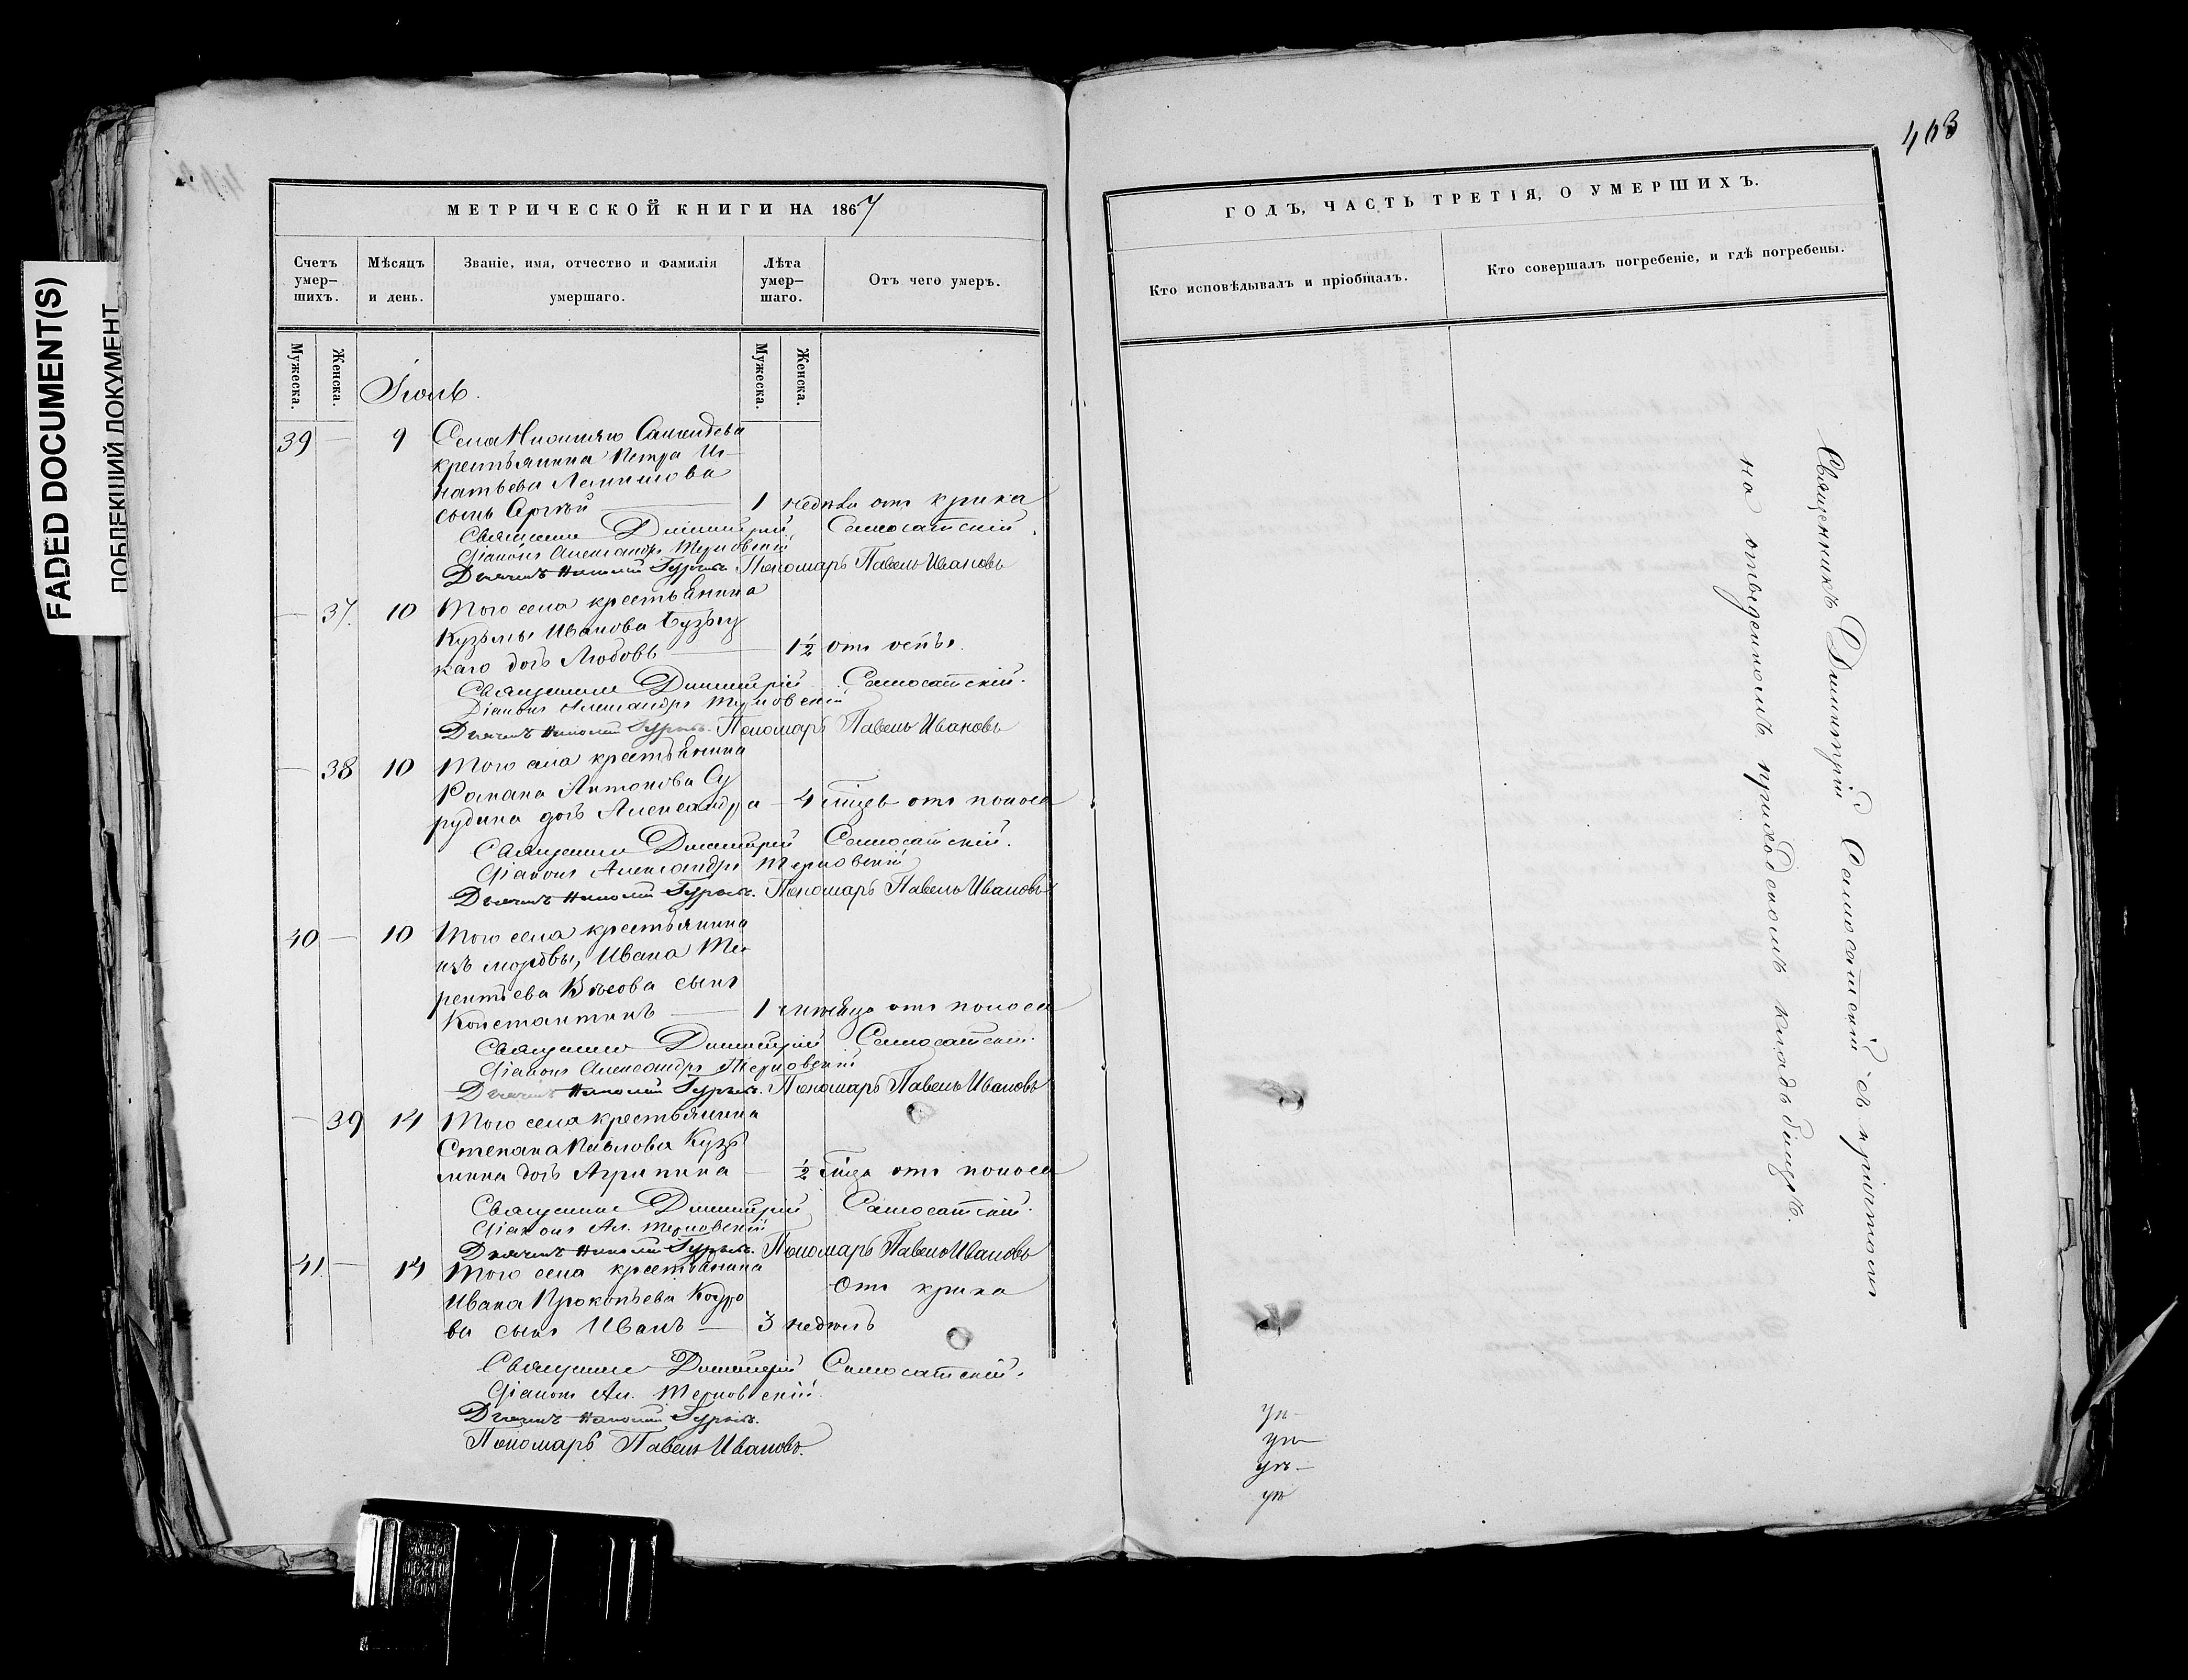 FADED DOCUMENT(S)
ПОБЛЕКШИЙ ДОКУМЕНТ
МЕТРИЧЕСКОЙ КНИГИ НА 1867
Счетъ умер-шихъ.
Мѣсяцъ и день.
Званіе, имя, отчество и фамилія умершаго.
Лѣта умер-шаго.
Отъ чего умеръ.
Мужеска.
Женска.
Мужеска.
Женска.
Іюль.
39 — 9 Села
крестьянина Петра Иг-
натьева
сынъ Сергѣй — 1 недѣли отъ крика
Священник Димитрій Самосатскій.
Діаконъ Александръ Терновскій
Дьячекъ Николай Гурьевъ. Пономарь Павелъ Ивановъ
— 37. 10 Того села крестьянина
Кузьмы Иванова
каго дочь Любовь — 1½ отъ оспы.
Священник Димитрій Самосатскій.
Діаконъ Александръ Терновскій
Дьячекъ Николай Гурьевъ. Пономарь Павелъ Ивановъ
— 38 10 Того села крестьянина
Романа Антонова Су
рудина дочь Александра — 4 отъ поноса
Священник Димитрій Самосатскій.
Діаконъ Александръ Терновскій
Дьячекъ Николай Гурьевъ. Пономарь Павелъ Ивановъ
40 — 10 Того села крестьянина
изъ мордвы, Ивана Те-
рентьева сынъ
Константинъ — 1 отъ поноса
Священник Димитрій Самосатскій.
Діаконъ Александръ Терновскій
Дьячекъ Николай Гурьевъ. Пономарь Павелъ Ивановъ
— 39 14 Того села крестьянина
Степана Павлова Кузь
мина дочь Агрипина — ½ отъ поноса
Священник Димитрій Самосатскій.
Діаконъ Ал. Терновскій
Дьячекъ Николай Гурьевъ. Пономарь Павелъ Ивановъ
41. — 14 Того села крестьянина
Ивана Прокопьева отъ крика
ва сынъ Иванъ — 3 недѣль
Священник Димитрій Самосатскій.
Діаконъ Ал. Терновскій.
Дьячекъ Николай Гурьевъ.
Пономарь Павелъ Ивановъ.
403
ГОДЪ, ЧАСТЬ ТРЕТІЯ, О УМЕРШИХЪ.
Кто исповѣдывалъ и пріобщалъ.
Кто совершалъ погребеніе, и гдѣ погребены.
Священникъ Димитрій Самосатскій съ причтомъ
на отведенномъ приходскомъ кладбищѣ.